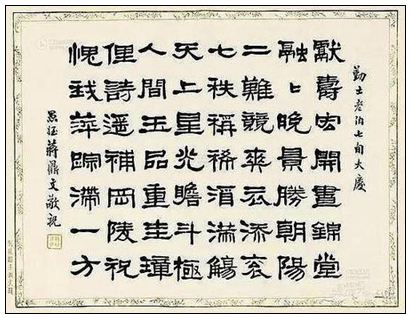 勤士老伯七旬大慶
獻壽宏開晝錦堂
融〻晚景勝朝陽
二難競爽添袞
七秩稱稀酒滿觴
天上星光瞻斗極
人間玉品重圭璋
俚詩遥補岡陵祝
愧我萍踪滯一方
愚侄蔣鼎文敬祝